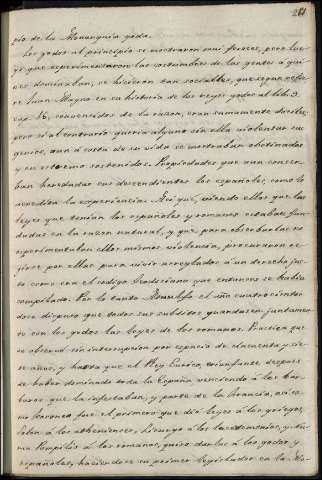 281
pio de la Monarquia goda.
Los godos al principio se mostraron mui feroces, pero lue-
go que experimentaron las costumbres de las gentes a qui-
enes dominaban, se hicieron tan sociables, que segun refie-
re Juan Magno en su historia de los reyes godos al lib. 9.
cap. 16, convencidos de la razon, eran sumamente dociles,
pero si al contrario queria alguno sin ella violentar su
genio, aun a costa de su vida se mostraban obstinados
y en extremo sostenidos. Propiedades que aun conser-
ban heredadas sus descendientes los españoles, como lo
acredita la experiencia. Asi que, viendo ellos que las
leyes que tenian los españoles y romanos estaban fun-
dadas en la razon natural, y que para observarlas no
experimentaban ellos mismos violencia, procuraron re-
girse por ellas para vivir arreglados a un derecho jus-
to como era el codigo Teodosiano que entonces se habia
compilado. Por lo tanto Ataulfo el año cuatrocientos
doce dispuso que todos sus subditos guardasen juntamen-
te con los godos las leyes de los romanos. Practica que
se observó sin interrupcion por espacio de cincuenta y sie-
te años, y hasta que el Rey Eurico triunfante despues
de haber dominado toda la España venciendo á los bar-
baros que la infestaban, y parte de la Francia, asi co-
mo foroneo fue el primero que dió leyes á los griegos,
Solon á los athenienses, Licurgo á los lacedemonios, y Nu-
ma Pompilio á los romanos, quiso darlas á los godos, y
españoles, haciendose su primer legislador en la